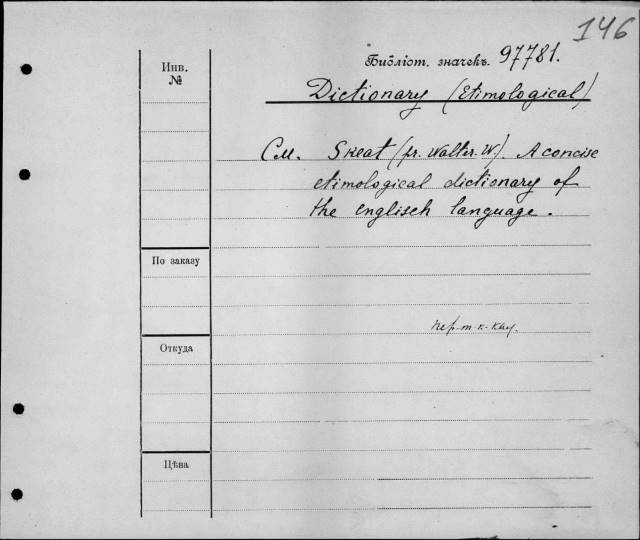 146
Инв.
№
Библіот. значекъ. 97781.
Dictionary (Etimological)
См. Skeat (pr. Walter. W). A concise
etimological dictionary of
the englisch language.
По заказу
Откуда
Цѣна